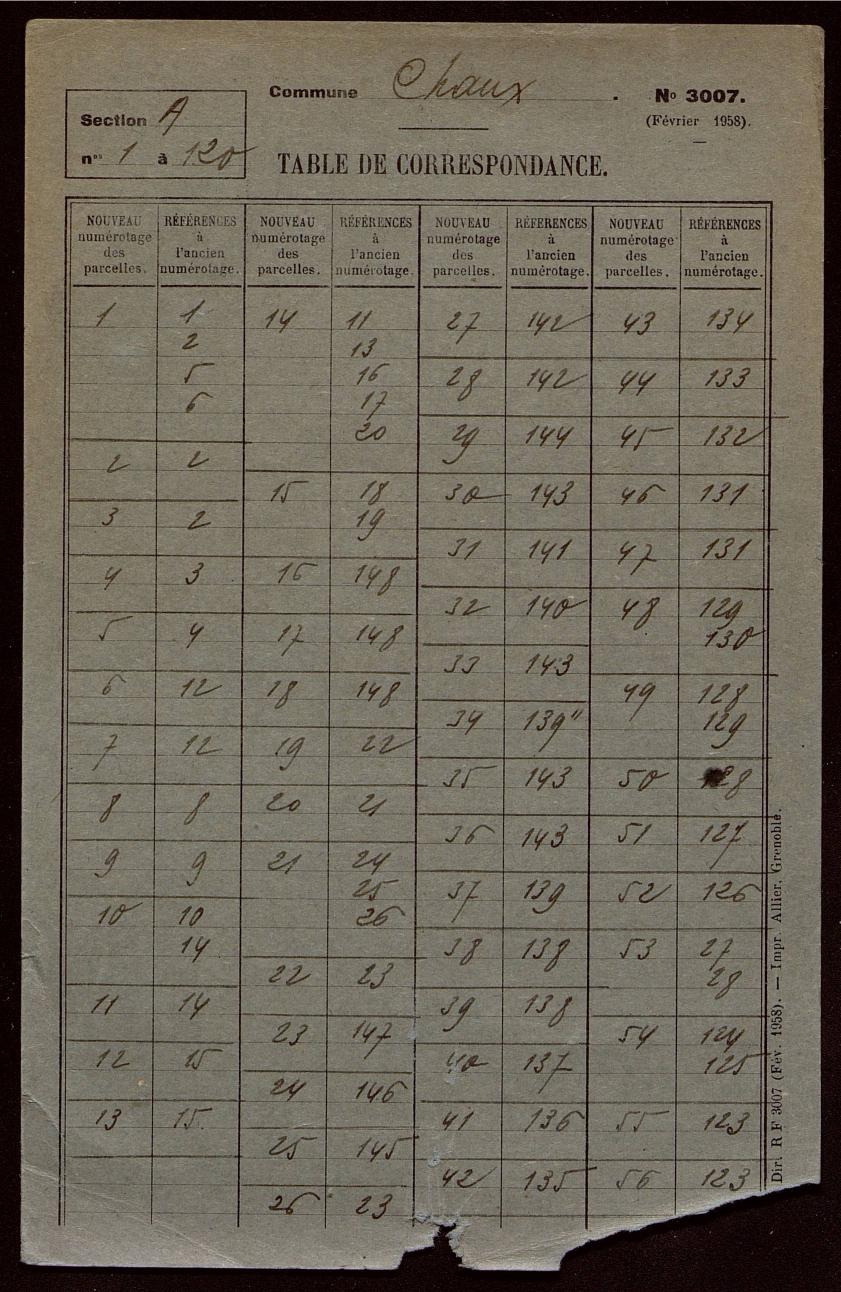 Commune Chaux . No 3007.
(Février 1958).
Section A
nos 1 à 120
TABLE DE CORRESPONDANCE.
NOUVEAU numérotage des parcelles. RÉFÉRENCES à l'ancien numérotage. NOUVEAU numérotage des parcelles. RÉFÉRENCES à l'ancien numérotage. NOUVEAU numérotage des parcelles. RÉFÉRENCES à l'ancien numérotage. NOUVEAU numérotage des parcelles. RÉFÉRENCES à l'ancien numérotage.
1 1
2
5
6
2 2
3 2
4 3
5 4
6 12
7 12
8 8
9 9
10 10
14
11 14
12 15
13 15.
14 11
13
16
17
20
15 18
19
16 148
17 148
18 148
19 22
20 21
21 24
25
26
22 23
23 147
24 146
25 145
26 23
27 142
28 142
29 144
30 143
31 141
32 140
33 143
34 139"
35 143
36 143
37 139
38 138
39 138
40 137
41 136
42 135
43 134
44 133
45 132
46 131
47 131
48 129
130
49 128
129
50 128
51 127
52 126
53 27
28
54 124
125
55 123
56 123
Dir. R F 3007 (Fév. 1958). — Impr. Allier, Grenoble.